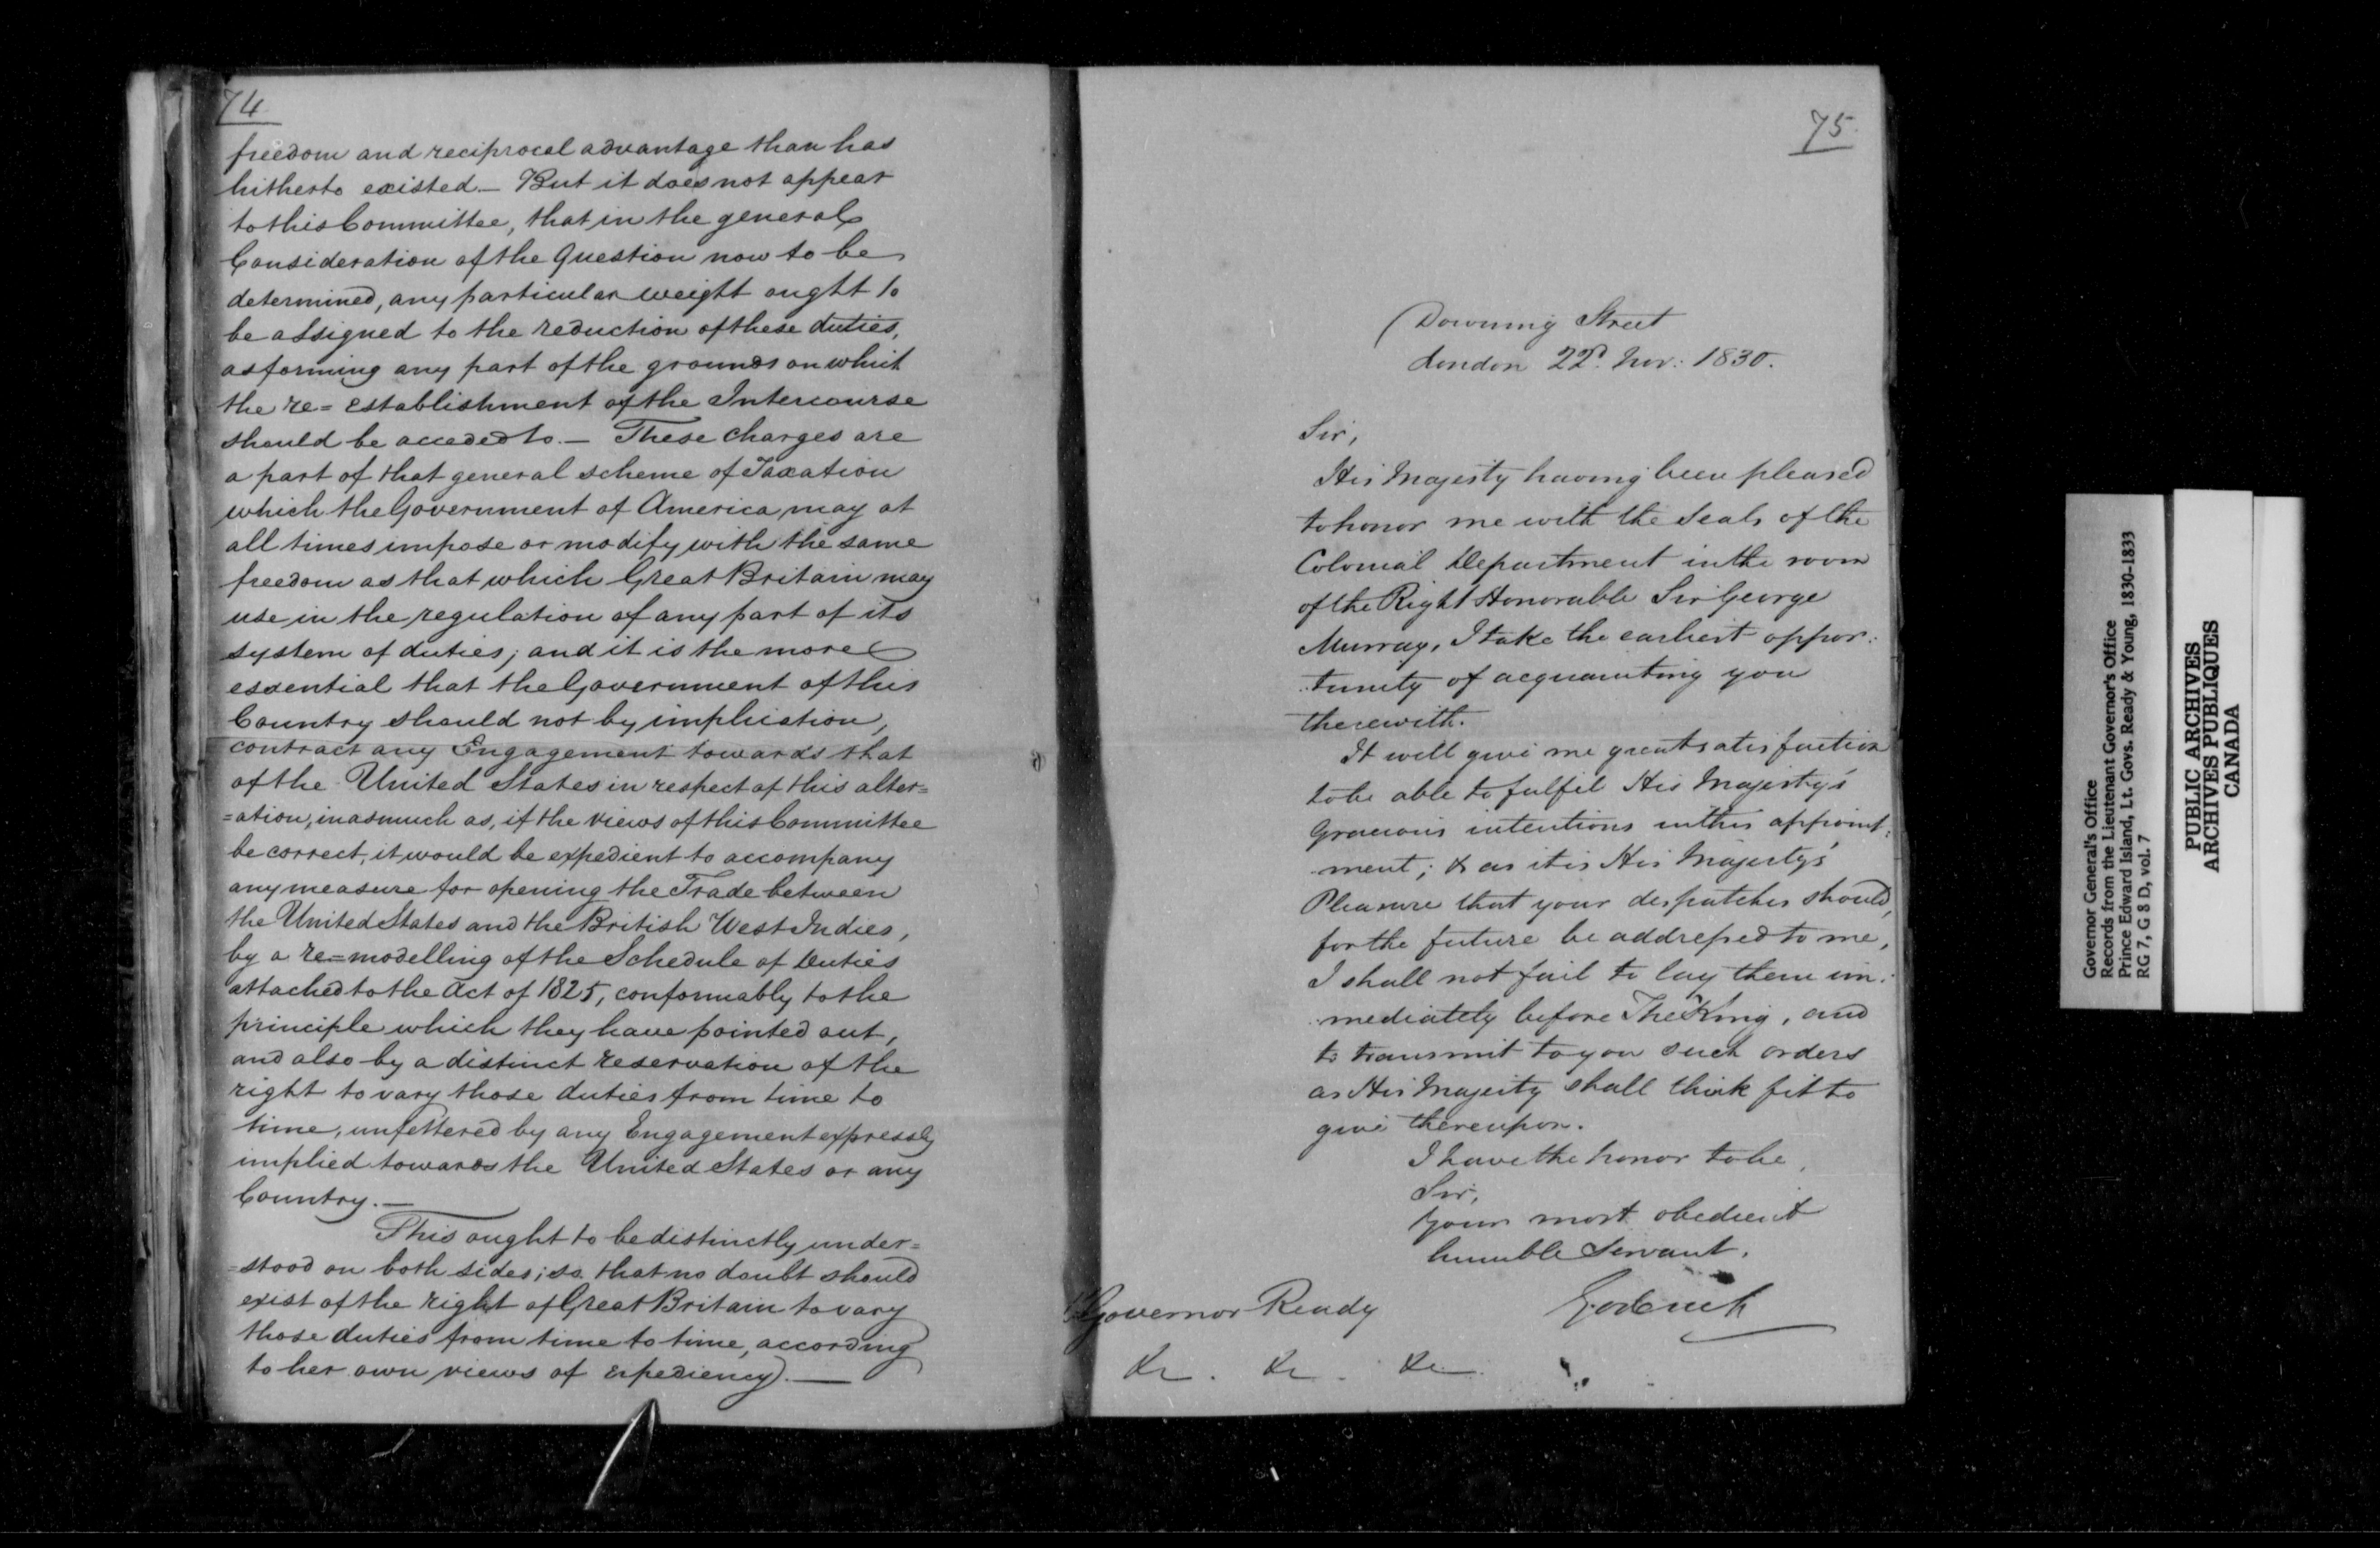 74
freedom and reciprocal advantage than has
hitherto existed. — But it does not appear
to this Committee, that in the general
Consideration of the Question now to be
determined, any particular weight ought to
be assigned to the reduction of these duties,
as forming any part of the grounds on which
the re=establishment of the Intercourse
should be acceded to. — These charges are
a part of that general scheme of Taxation
which the Government of America may at
all times impose or modify with the same
freedom as that which Great Britain may
use in the regulation of any part of its
system of duties; and it is the more
essential that the Government of this
Country should not by implication,
contract any Engagement towards that
of the United States in respect of this alter=
=ation, inasmuch as, if the views of this Committee
be correct, it would be expedient to accompany
any measure for opening the Trade between
the United States and the British West Indies,
by a re=modelling of the Schedule of Duties
attached to the Act of 1825, conformably to the
principle which they have pointed out,
and also by a distinct reservation of the
right to vary those duties from time to
time, unfettered by any Engagement expressly
implied towards the United States or any
Country. —
This ought to be distinctly under=
=stood on both sides; so that no doubt should
exist of the right of Great Britain to vary
those duties from time to time, according
to her own views of expediency). —
75.
Downing Street
London 22d. Nov: 1830.
Sir,
His Majesty having been pleased
to honor me with the Seals of the
Colonial Department in the room
of the Right Honorable Sir George
Murray, I take the earliest oppor:
:tunity of acquainting you
therewith.
It will give me great satisfaction
to be able to fulfil His Majesty's
Gracious intentions in this appoint:
:ment; & as it is His Majesty's
Pleasure that your despatches should,
for the future be addressed to me,
I shall not fail to lay them im:
:mediately before The King, and
to transmit to you such orders
as His Majesty shall think fit to
give thereupon.
I have the honor to be,
Sir,
Your most obedient
humble Servant.
Goderich
Governor Ready
&c. &c. &c.
Governor General's Office
Records from the Lieutenant Governor's Office
Prince Edward Island, Lt. Govs. Ready & Young, 1830-1833
RG 7, G 8 D, vol. 7
PUBLIC ARCHIVES
ARCHIVES PUBLIQUES
CANADA